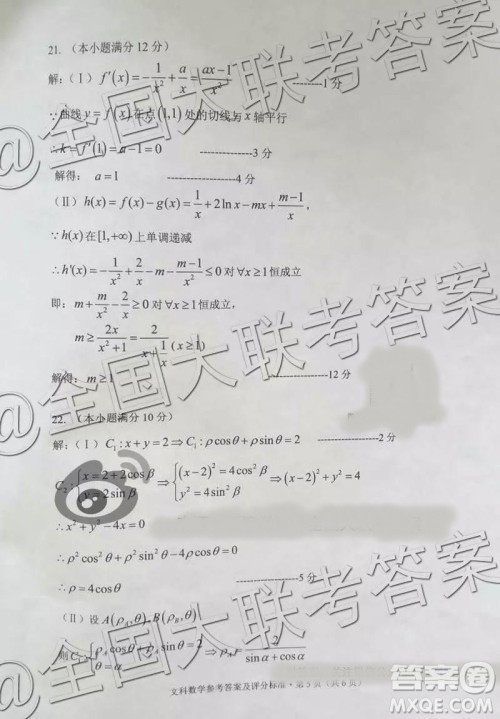 21. (本小题满分 12 分)
解:(Ⅰ) f'(x)=-1/x²+a/x=(ax-1)/x² -----------1 分
∵曲线 y=f(x) 在点(1,1) 处的切线与 x 轴平行
∴k=f'(1)=a-1=0 -------------3 分
解得: a=1 -----------------4 分
(Ⅱ) h(x)=f(x)-g(x)=1/x+2ln x-mx+(m-1)/x,
∵h(x)在[1,+∞)上单调递减
∴h'(x)=-1/x²+2/x-m-(m-1)/x²≤0 对∀x≥1恒成立
即: m+m/x²-2/x≥0 对∀x≥1恒成立,
m≥2x/(x²+1)=2/(x+1/x) (x≥1)
解得: m≥1 -----------------12 分
22. (本小题满分 10 分)
解:(Ⅰ) C₁:x+y=2⇒C₁:ρcosθ+ρsinθ=2 -----------------2 分
C₂:{x=2+2cosβ y=2sinβ ⇒{(x-2)²=4cos²β y²=4sin²β ⇒(x-2)²+y²=4
∴x²+y²-4x=0
∴ρ²cos²θ+ρ²sin²θ-4ρcosθ=0
∴ρ=4cosθ -----------------5 分
(Ⅱ)设 A(ρ_A,θ),B(ρ_B,θ)
则 2/(sinα+cosα)
文科数学参考答案及评分标准·第 5 页(共 6 页)
@全国大联考答案
@全国大联考答案
答案圈
MXQE.COM